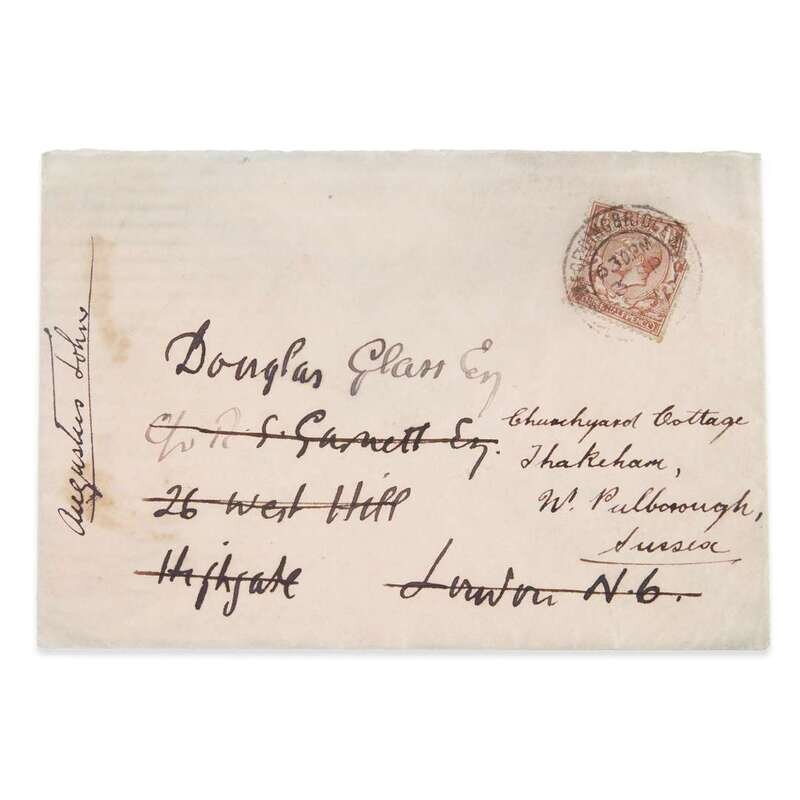 FORDINGBRIDGE
6 30 PM
Douglas Glass Esq
c/o R. S. Garnett Esq.
26 West Hill
Highgate London N.6.
Churchyard Cottage
Thakeham,
Nr. Pulborough,
Sussex
Augustus Johns